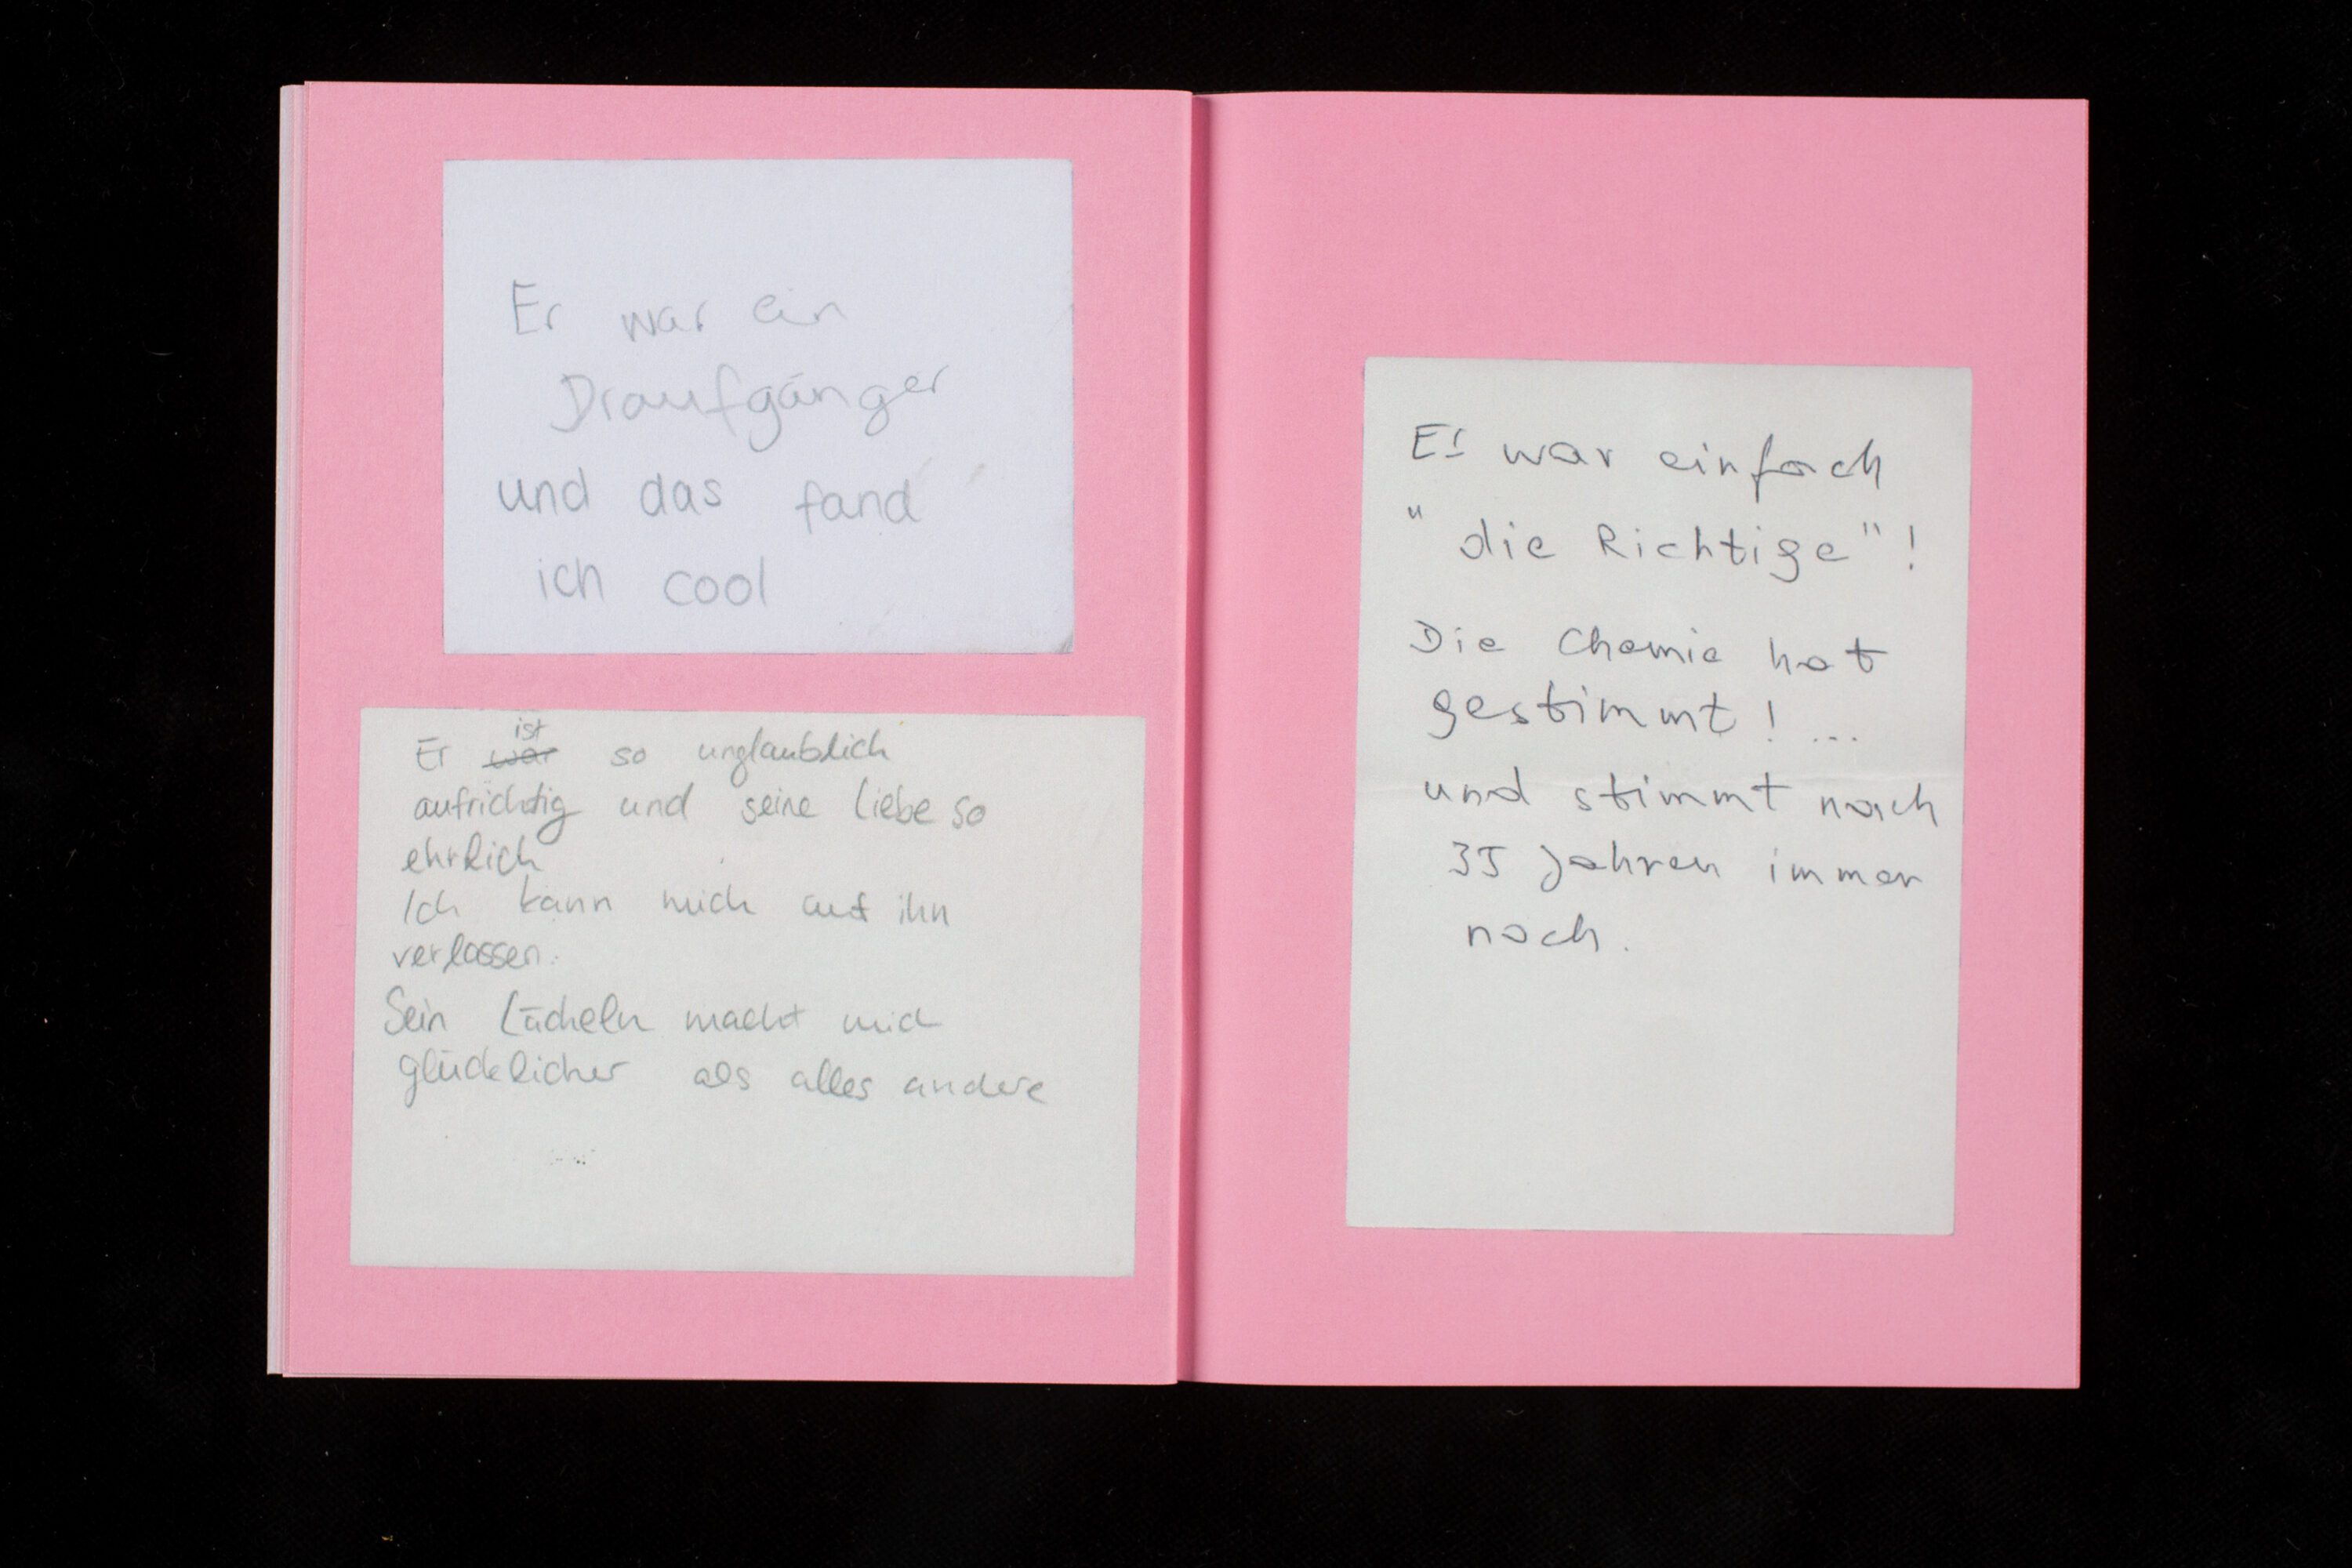 Er war ein
Draufgänger
und das fand
ich cool
ist
Er war so unglaublich
aufrichtig und seine Liebe so
ehrlich
Ich kann mich auf ihn
verlassen.
Sein Lächeln macht mich
glücklicher als alles andere
Es war einfach
" die Richtige"!
Die Chemie hat
gestimmt! ...
und stimmt nach
35 Jahren immer
noch.